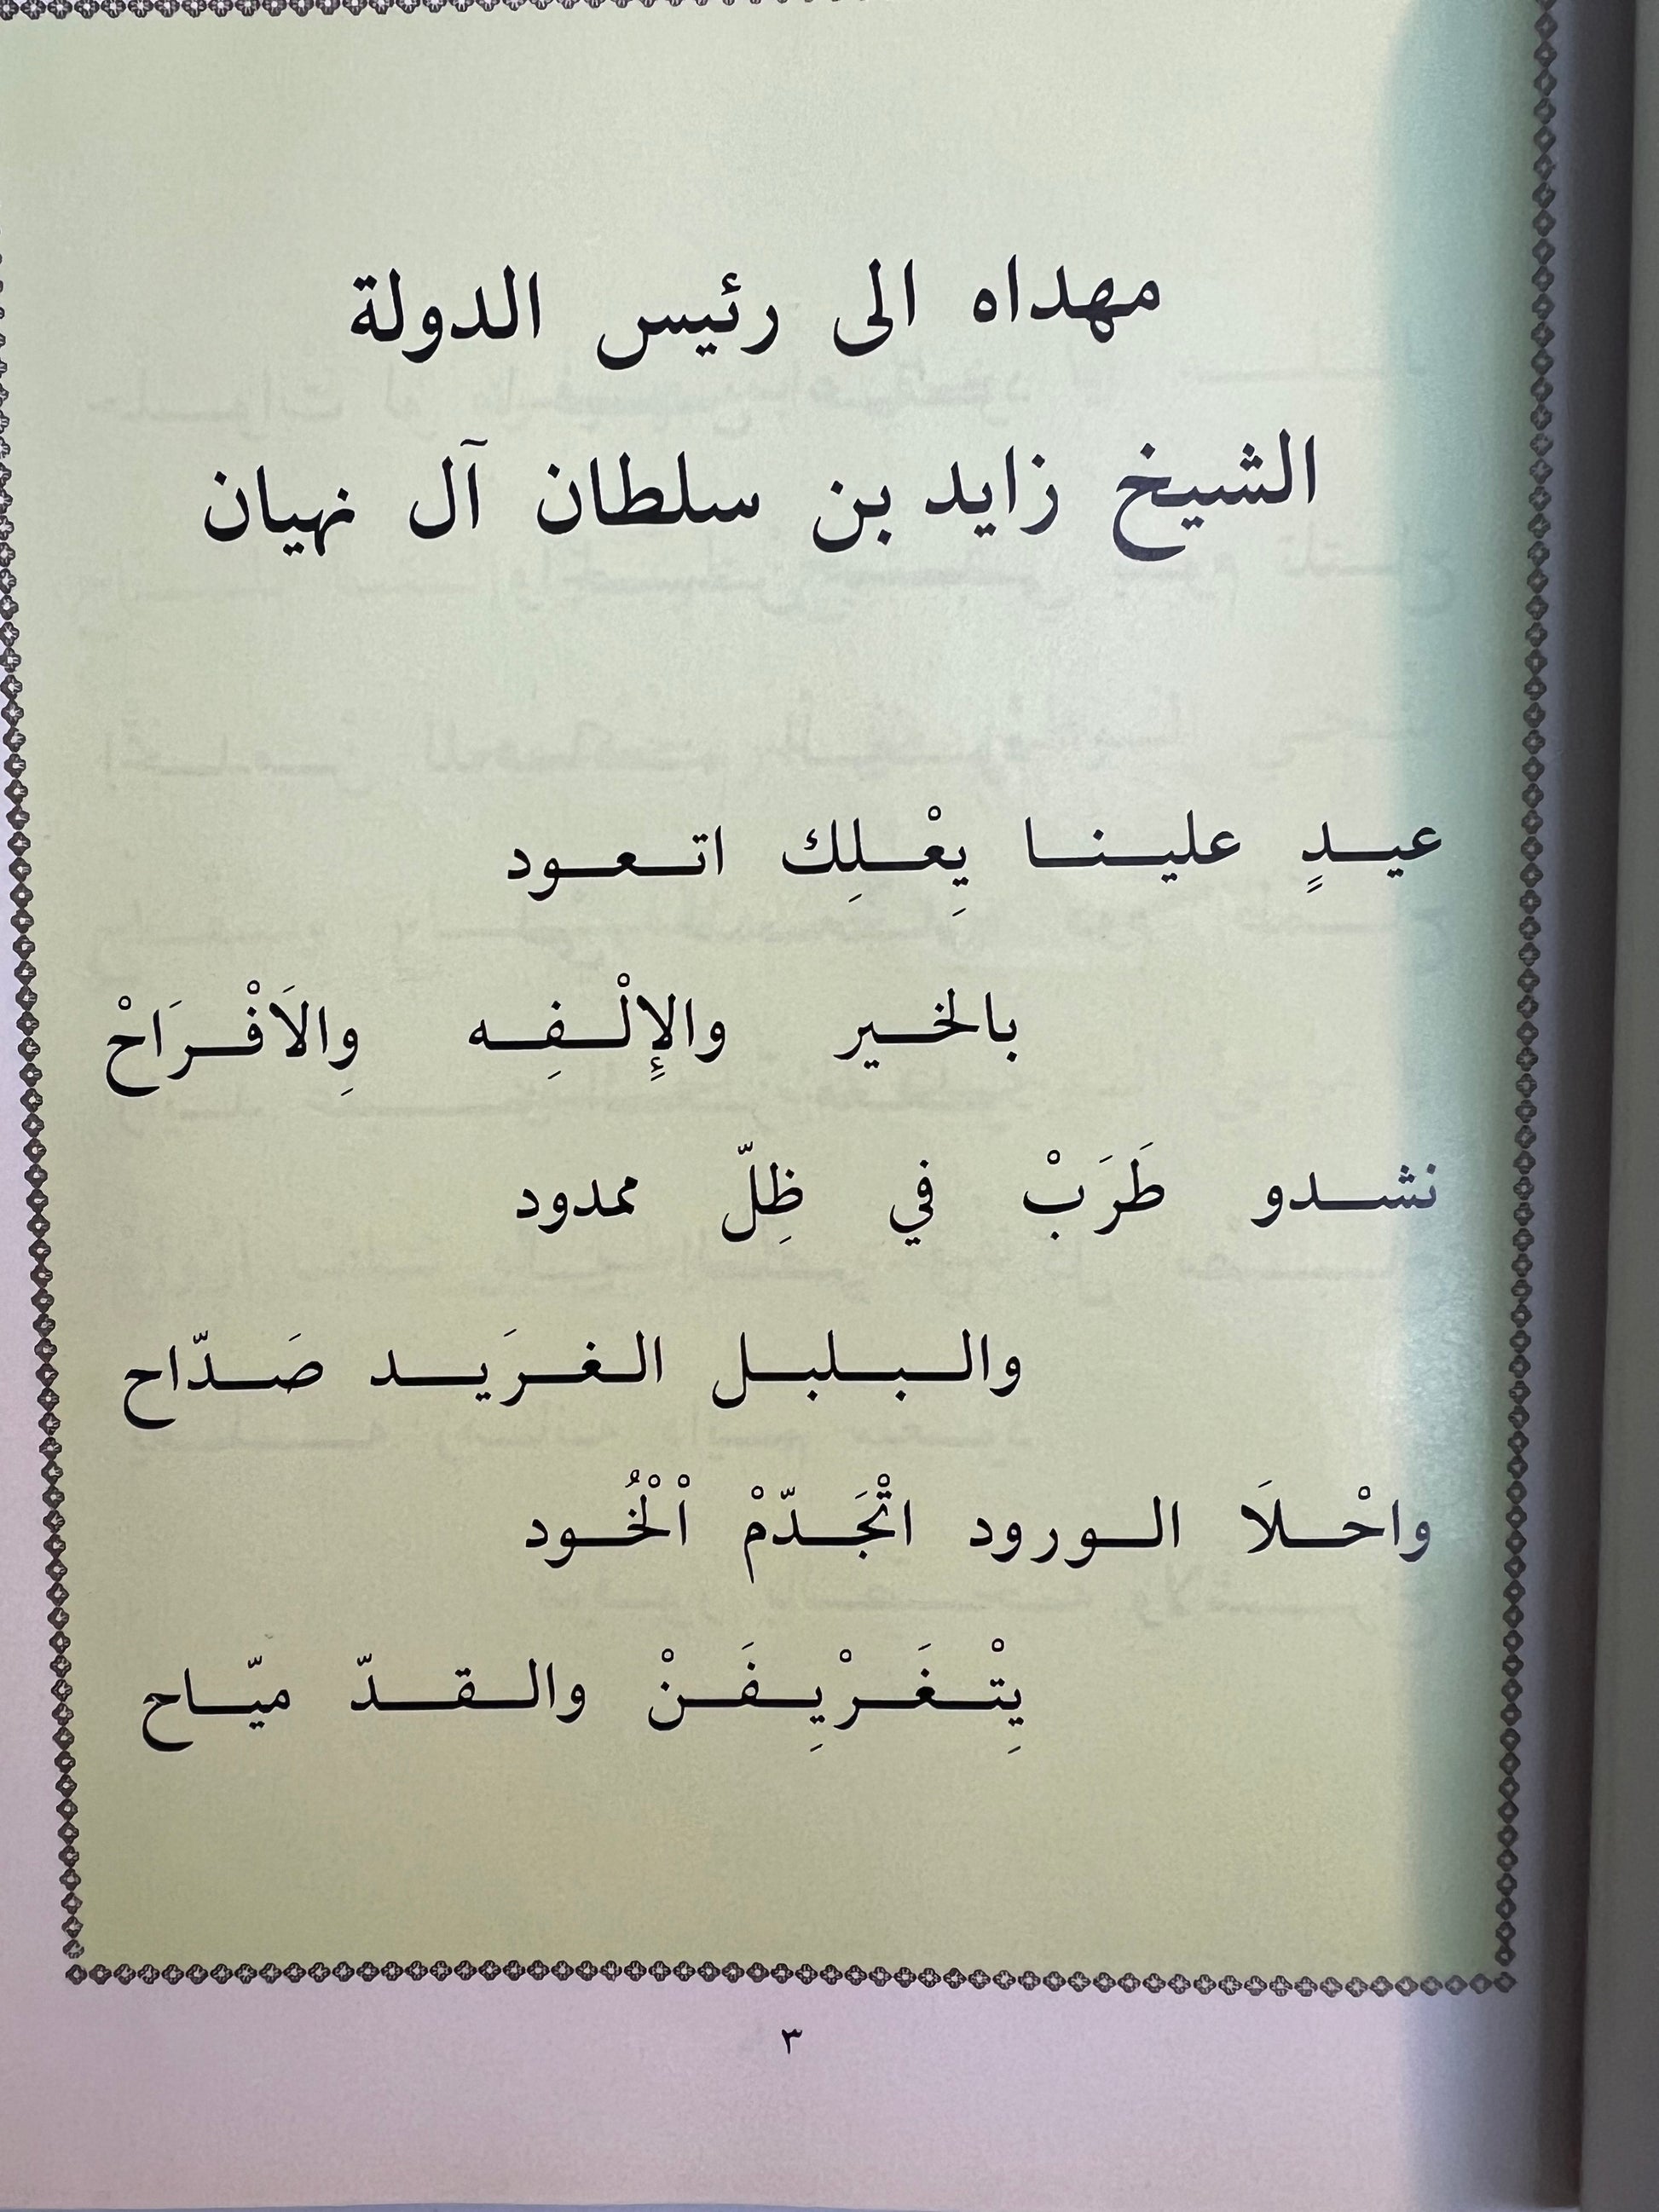 مهداه الى رئيس الدولة
الشيخ زايد بن سلطان آل نهيان
عيدٍ علينا يِعْلِك اتعود
بالخير والإِلْفِه وِالاَفْرَاحْ
نشدو طَرَبْ في ظِلّ ممدود
والبلبل الغرَيد صَدّاح
واحْلاَ الورود اتْجَدّمْ اْلْخُود
يِتْغَرْيِفَنْ والقدّ ميّاح
٣